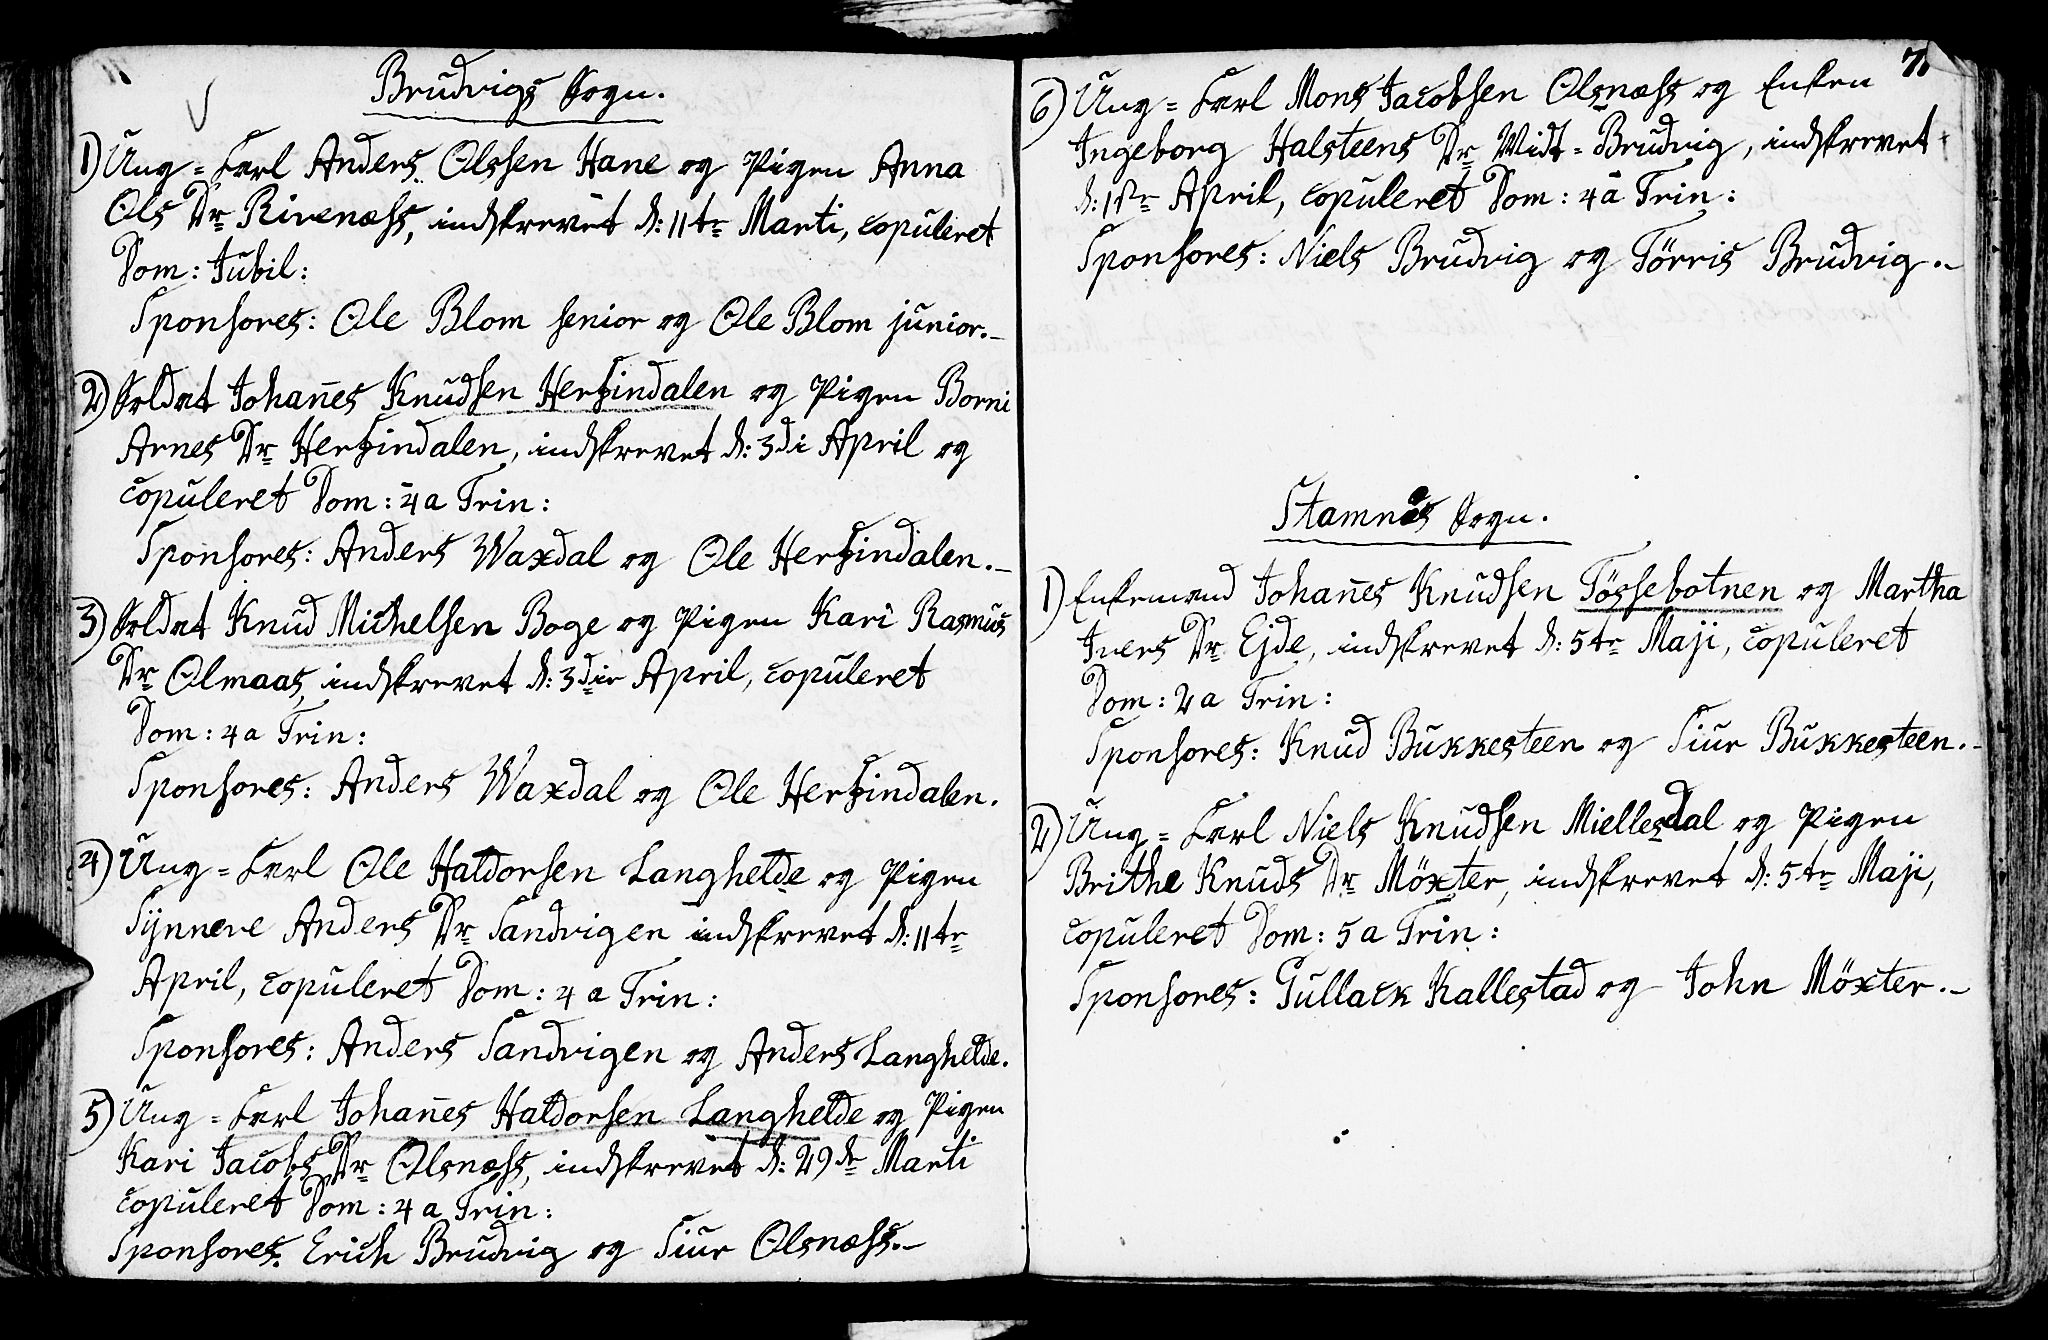 Brudvigs Sogn.
1) Ung=Karl Anders Olssen Hane og Pigen Anna
Ols Dr Rivenæss, indskrevet d: 11te Marti, copuleret
Dom: Jubil:
Sponsores: Ole Blom senior og Ole Blom junior.
2) Soldat Johan̄es Knudsen Herfindalen og Pigen Borni
Arnes Dr Herfindalen, indskrevet d: 3di April og
copuleret Dom: 4a Trin:
Sponsores: Anders Waxdal og Ole Herfindalen.
3) Soldat Knud Michelsen Boge og Pigen Kari Rasmus
Dr Olmaas, indskrevet d: 3die April, copuleret
Dom: 4a Trin:
Sponsores: Anders Waxdal og Ole Herfindalen.
4) Ung=Karl Ole Haldorsen Langhelde og Pigen
Synneve Anders Dr Sandvigen indskrevet d: 11te
April, copuleret Dom: 4a Trin:
Sponsores: Anders Sandvigen og Anders Langhelde.
5) Ung=Karl Johan̄es Haldorsen Langhelde og Pigen
Kari Jacobs Dr Olsnæss, indskrevet d: 29de Marti
copuleret Dom: 4a Trin:
Sponsores: Erich Brudvig og Siur Olsnæss.
7
6) Ung=Karl Mons Jacobsen Olsnæss og Enken
Ingeborg Halsteens Dr Widt=Brudvig, indskrevet
d: 1ste April, copuleret Dom: 4a Trin:
Sponsores: Niels Brudvig og Törris Brudvig.
Stamnes Sogn.
1) Enkemand Johan̄es Knudsen Tössebotnen og Martha
Ivers Dr Ejde, indskrevet d: 5te Maji, copuleret
Dom: 2a Trin:
Sponsores: Knud Bukkesteen og Siur Bukkesteen.
2) Ung=Karl Niels Knudsen Miellesdal og Pigen
Brithe Knuds Dr Möxter, indskrevet d: 5te Maji,
copuleret Dom: 5a Trin:
Sponsores: Gullack Kallestad og John Möxter.